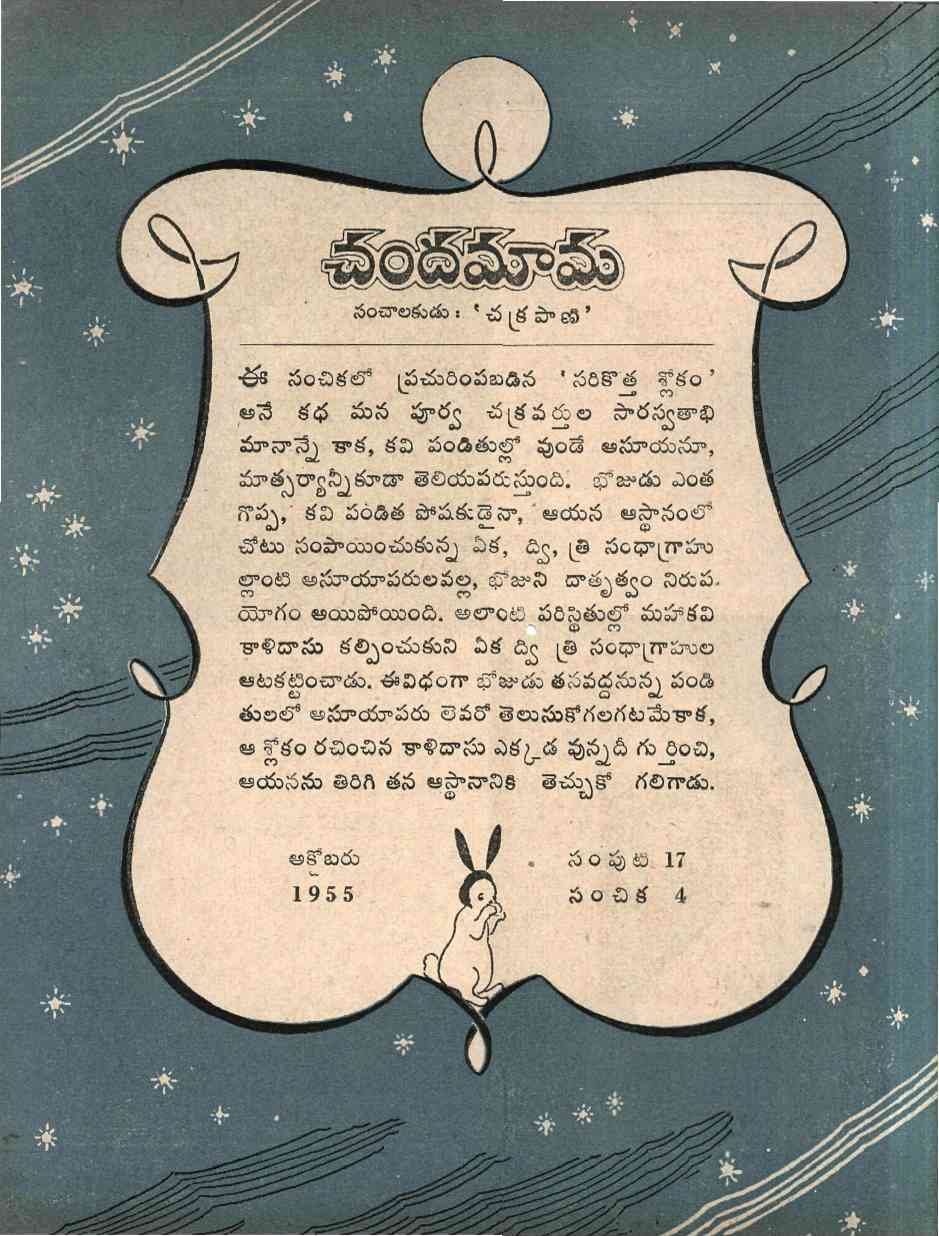 చందమామ
సంచాలకుడు : ‘చక్రపాణి’
ఈ సంచికలో ప్రచురింపబడిన ‘సరికొత్త శ్లోకం’
అనే కథ మన పూర్వ చక్రవర్తుల సారస్వతాభి
మానాన్నే కాక, కవి పండితుల్లో వుండే అసూయనూ,
మాత్సర్యాన్నీకూడా తెలియపరుస్తుంది. భోజుడు ఎంత
గొప్ప, కవి పండిత పోషకుడైనా, ఆయన ఆస్థానంలో
చోటు సంపాయించుకున్న ఏక, ద్వి, త్రి సంధాగ్రాహు
ల్లాంటి అసూయాపరులవల్ల, భోజుని దాతృత్వం నిరుప-
యోగం అయిపోయింది. అలాంటి పరిస్థితుల్లో మహాకవి
కాళిదాసు కల్పించుకుని ఏక ద్వి త్రి సంధాగ్రాహుల
ఆటకట్టించాడు. ఈవిధంగా భోజుడు తనవద్దనున్న పండి
తులలో అసూయాపరు లెవరో తెలుసుకోగలగటమేకాక,
ఆ శ్లోకం రచించిన కాళిదాసు ఎక్కడ వున్నదీ గుర్తించి,
ఆయనను తిరిగి తన ఆస్థానానికి తెచ్చుకో గలిగాడు.
అక్టోబరు
1955
సంపుటి 17
సంచిక 4